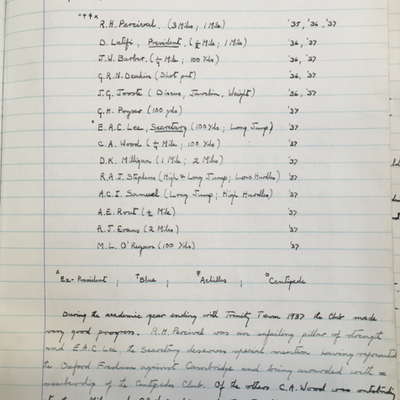 R.H. Percival, (3 Miles; 1 Mile) '35, '36, '37
D. Latifi, President, (½ Mile; 1 Mile) '36, '37
J.W. Barber (¼ Mile; 100 Yds) '36, '37
G.R.N. Deakin (Shot put) '36, '37
J.G. Jooste (Discus, Javelin, Weight) '36, '37
G.H. Poyser (100 yds) '37
° E.A.C. Lee, Secretary (100 Yds; Long Jump) '37
C.A. Wood (¼ Mile; 100 Yds) '37
D.K. Milligan (1 Mile; 2 Miles) '37
R.A.J. Stephens (High & Long Jump; Low Hurdles) '37
A.C.I. Samuel (Long Jump; High Hurdles) '37
A.E. Rout (½ Mile) '37
R.J. Evans (2 Miles) '37
M.L. O'Regan (100 Yds) '37
x Ex-President; † Blue; Achilles; ° Centipede
During the academic year ending with Trinity Term 1937 the Club made
very good progress. R.H. Percival was an unfailing pillar of strength
and E.A.C. Lee, the Secretary deserves special mention having represented
the Oxford Freshmen against Cambridge and being awarded with
membership of the Centipedes Club. Of the others C.A. Wood was outstanding